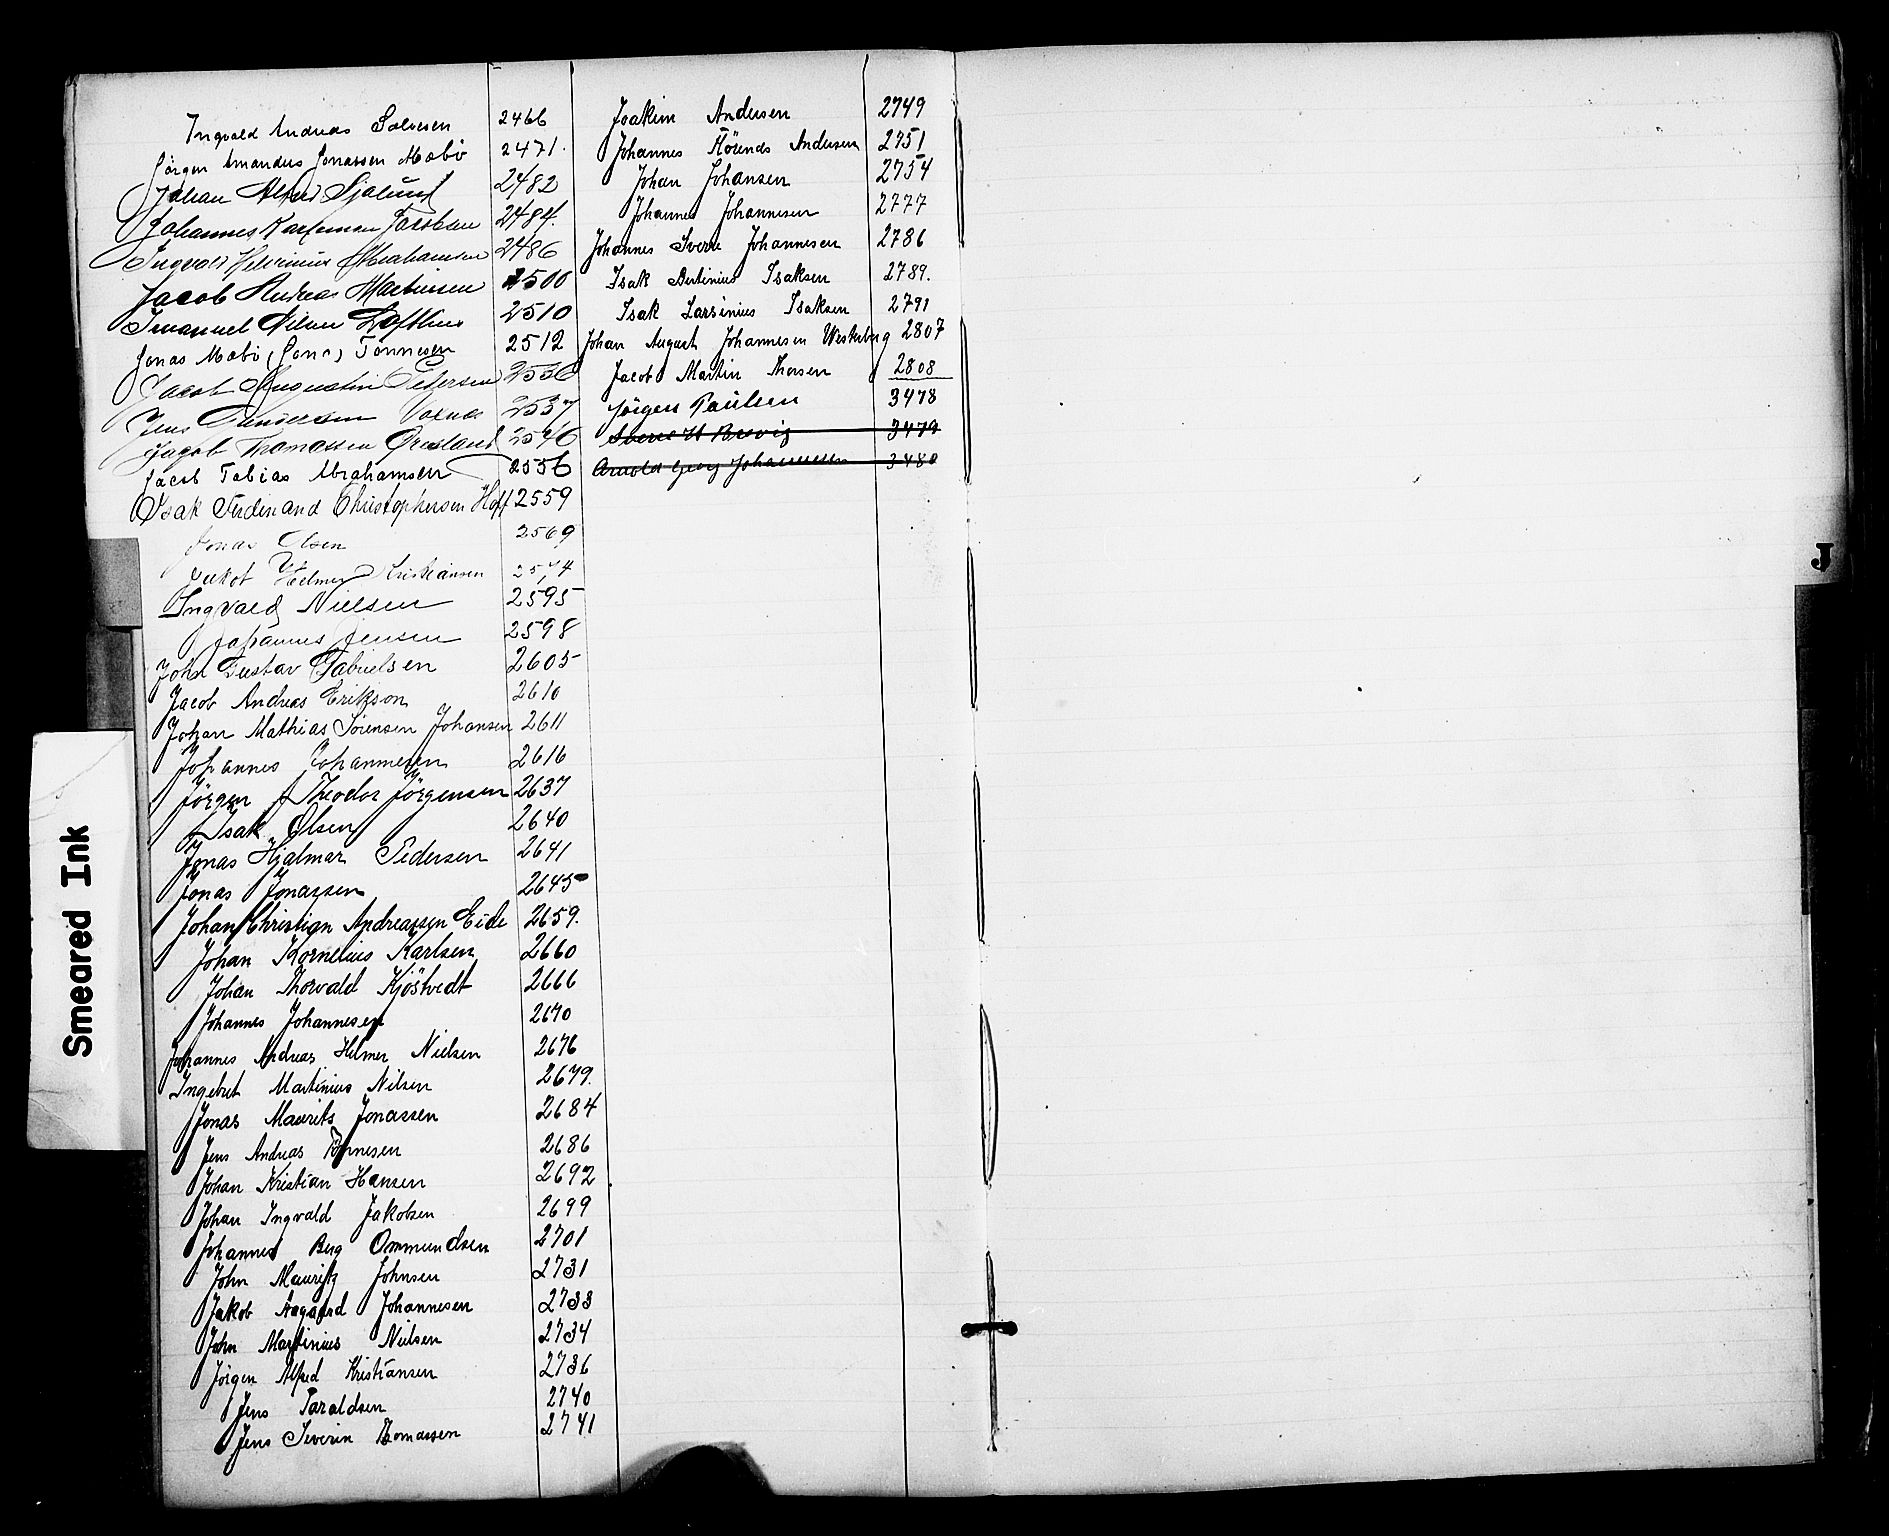 Ingvald Andreas Salvesen 2466
Jørgen Amandus Jonassen Mobø 2471.
Johan Alfred Sjölund 2482
Johannes Jacobsen 2484.
Ingvald Abrahamsen 2486
Jacob Andreas Martinsen 2500
Imanuel Nilsen Lofthus 2510
Jonas Mobø (Jons) Tønnesen 2512
Jacob Augustin Pedersen 2536
Jens Gundersen 2537
Jacob Thomassen 2546
Jacob Tobias Abrahamsen 2556
Isak Ferdinand Christophersen Hoff 2559
Jonas Olsen 2569
Jakob Helmer Kristiansen 2574
Ingvald Nielsen 2595
Johannes Jensen 2598
John Gustav Gabrielsen 2605
Jacob Andreas Erikson 2610
Johan Mathias Sörensen Johansen 2611
Johannes Johannesen 2616
Jörgen Theodor Jörgensen 2637
Isak Olsen 2640
Jonas Hjalmar Pedersen 2641
Jonas Jonassen 2645
Johan Christian Andreassen Eide 2659.
Johan Kornelius Karlsen 2660
Johan Thorvald Kjöstvedt 2666
Johannes Johannesen 2670
Johannes Andreas Helmer Nielsen 2676
Ingebret Martinius Nilsen 2679.
Jonas Maurits Jonassen 2684
Jens Andreas Tönnesen 2686
Johan Kristian Hansen 2692
Johan Ingvald Jakobsen 2699
Johannes Berg Ommundsen 2701
John Mauritz Johnsen 2731
Jakob Aagaard Johannesen 2733
John Martinius Nielsen 2734
Jörgen Alfred Kristiansen 2736
Jens Taraldsen 2740
Jens Severin Thomassen 2741
Joakim Andersen 2749
Johannes Andersen 2751
Johan Johansen 2754
Johannes Johannesen 2777
Johannes Sverre Johannesen 2786
Isak Bertinius Isaksen 2789.
Isak Larsinius Isaksen 2791
Johan August Johannesen Westerberg 2807
Jacob Martin Thorsen 2808
Jørgen Paulsen 3478
Sverre H Brevig 3479
Arnold Georg Johannessen 3480
J
Smeared Ink